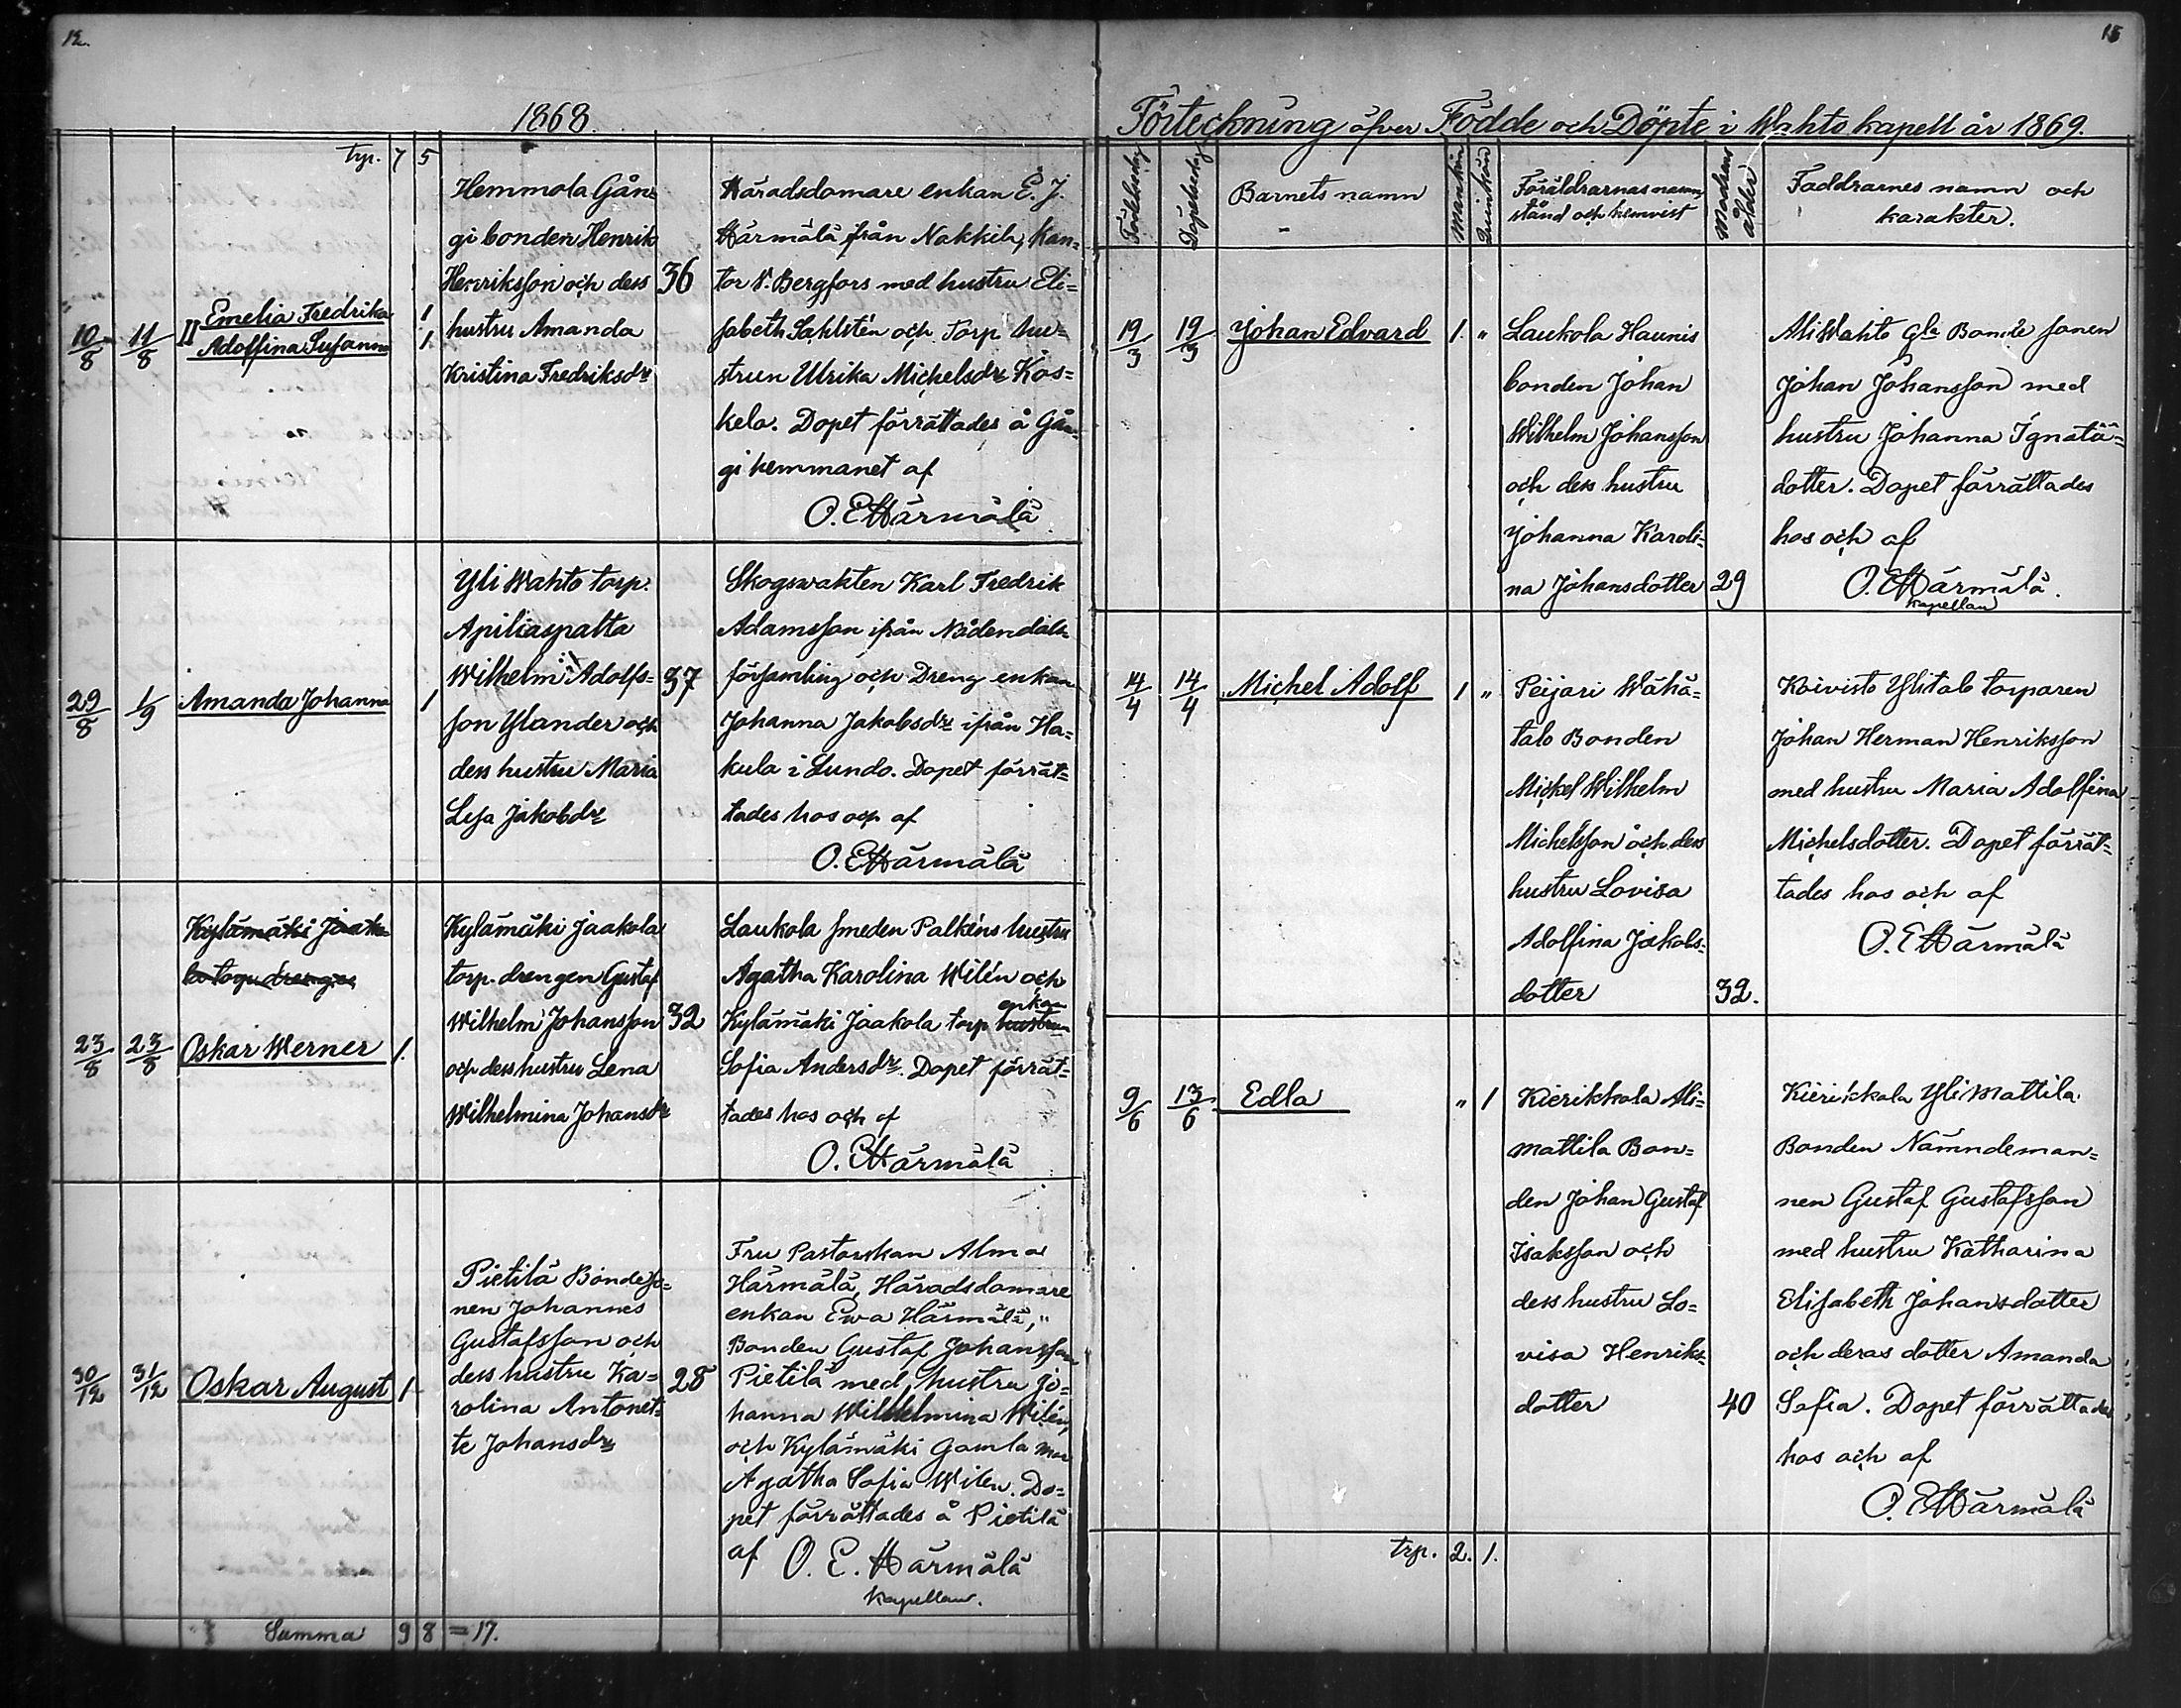 12.
1868.
trp. 7 5
10/8 11/8 II Emelia Fredrika 1
Adolfina Susanna 1
Hemmola Gån-
gi bonden Henrik
Henriksson och dess 36
hustru Amanda
Kristina Fredriksdr
Häradsdomare enkan E. J.
Härmälä från Nakkila, Kan-
tor V. Bergfors med hustru Eli-
sabeth Sahlstén och Torp hu-
strun Ulrika Michelsdr Kos-
kela. Dopet förrättades å Gån-
gi hemmanet af
O. E Härmälä
29/8 1/9 Amanda Johanna 1
Yli Wahto torp.
Apiliaspalta
Wilhelm Adolfs- 37
son Ylander och
dess hustru Maria
Lisa Jakobdr
Skogswakten Karl Fredrik
Adamsson ifrån Nådendals
församling och Dreng enkan
Johanna Jakobsdr ifrån Ha-
kula i Lundo. Dopet förrät-
tades hos och af
O. E Härmälä
Kylämäki Jaako-
la torp drengen
23/8 23/8 Oskar Werner 1.
Kylämäki Jaakola
torp. drengen Gustaf
Wilhelm Johansson 32
och dess hustru Lena
Wilhelmina Johansdr
Laukola smeden Palkéns hustru
Agatha Karolina Wilén och
enkan
Kylämäki Jaakola torp hustrun
Sofia Andersdr. Dopet förrät-
tades hos och af
O. E Härmälä
30/12 31/12 Oskar August 1
Pietilä Bondeso-
nen Johannes
Gustafsson och
dess hustru Ka- 28
rolina Antonet-
te Johansdr
Fru Pastorskan Alma
Härmälä, Häradsdomare
enkan Ewa Härmälä,
Bonden Gustaf Johansson
Pietilä med hustru Jo-
hanna Wilhelmina Wilén,
och Kylämäki Gamla mor
Agatha Sofia Wilen. Do-
pet förrättades å Pietilä
af O. E. Härmälä
Kapellan.
Summa 9 8 = 17.
15
Förteckning öfver Födde och Döpte i Wahto kapell år 1869.
Födelsedag Döpelsedag Barnets namn Mankön Qvinkön Föräldrarnas namn, stånd och hemvist Modrens ålder Faddrarnes namn och karakter.
19/3 19/3 Johan Edvard 1. "
Laukola Haunis
bonden Johan
Wilhelm Johansson
och dess hustru
Johanna Karoli-
na Johansdotter 29
Ali Wahto Gla Bonde sonen
Johan Johansson med
hustru Johanna Ignatä-
dotter. Dopet förrättades
hos och af
O. E Härmälä.
Kapellan
14/4 14/4 Michel Adolf 1 "
Peijari Wähä-
talo Bonden
Mickel Wilhelm
Michelsson och dess
hustru Lovisa
Adolfina Jakobs-
dotter 32.
Koivisto Ylitalo torparen
Johan Herman Henriksson
med hustru Maria Adolfina
Michelsdotter. Dopet förrät-
tades hos och af
O. E Härmälä
9/6 13/6 Edla " 1
Kierikkala Ali-
mattila Bon-
den Johan Gustaf
Isaksson och
dess hustru Lo-
visa Henriks-
dotter 40
Kierikkala Yli Mattila
Bonden Nämndeman-
nen Gustaf Gustafsson
med hustru Katharina
Elisabeth Johansdotter
och deras dotter Amanda
Sofia. Dopet förrättades
hos och af
O. E Härmälä
trp. 2. 1.